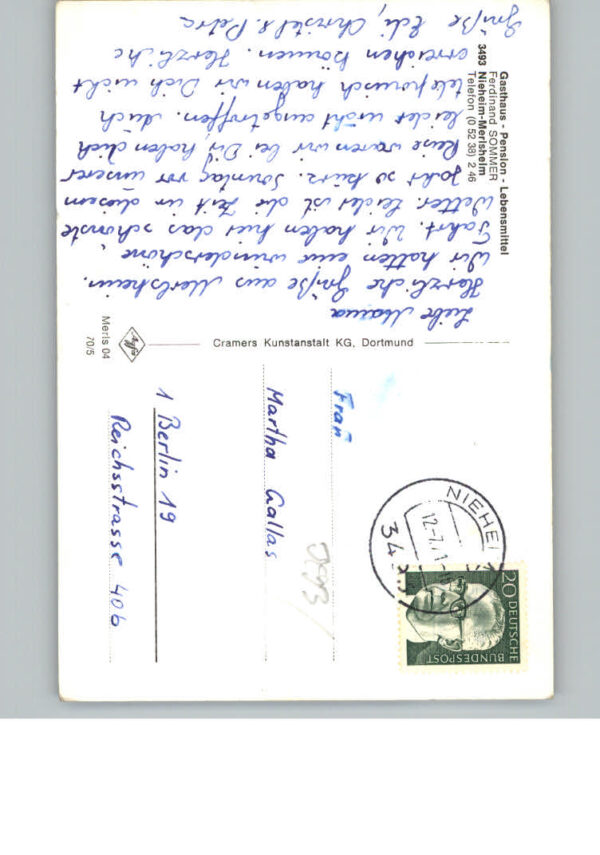 Gasthaus - Pension - Lebensmittel
Ferdinand SOMMER
3493 Nieheim-Merlsheim
Telefon (0 52 38) 2 46
Liebe Mama
Herzliche Grüße aus Merlsheim.
Wir hatten eine wunderschöne
Fahrt. Wir haben hier das schönste
Wetter. Leider ist die Zeit in diesem
Jahr so kurz. Sonntag vor unserer
Reise waren wir bei Dir, haben dich
leider nicht angetroffen. Auch
telefonisch haben wir Dich nicht
erreichen können. Herzliche
Grüße Edi, Christel & Petra
Cramers Kunstanstalt KG, Dortmund
Agfa
Merls 04
70/5
Frau
Martha Gallas
1 Berlin 19
Reichsstrasse 40b
NIEHEI
12.-7.
34
20
DEUTSCHE
BUNDESPOST